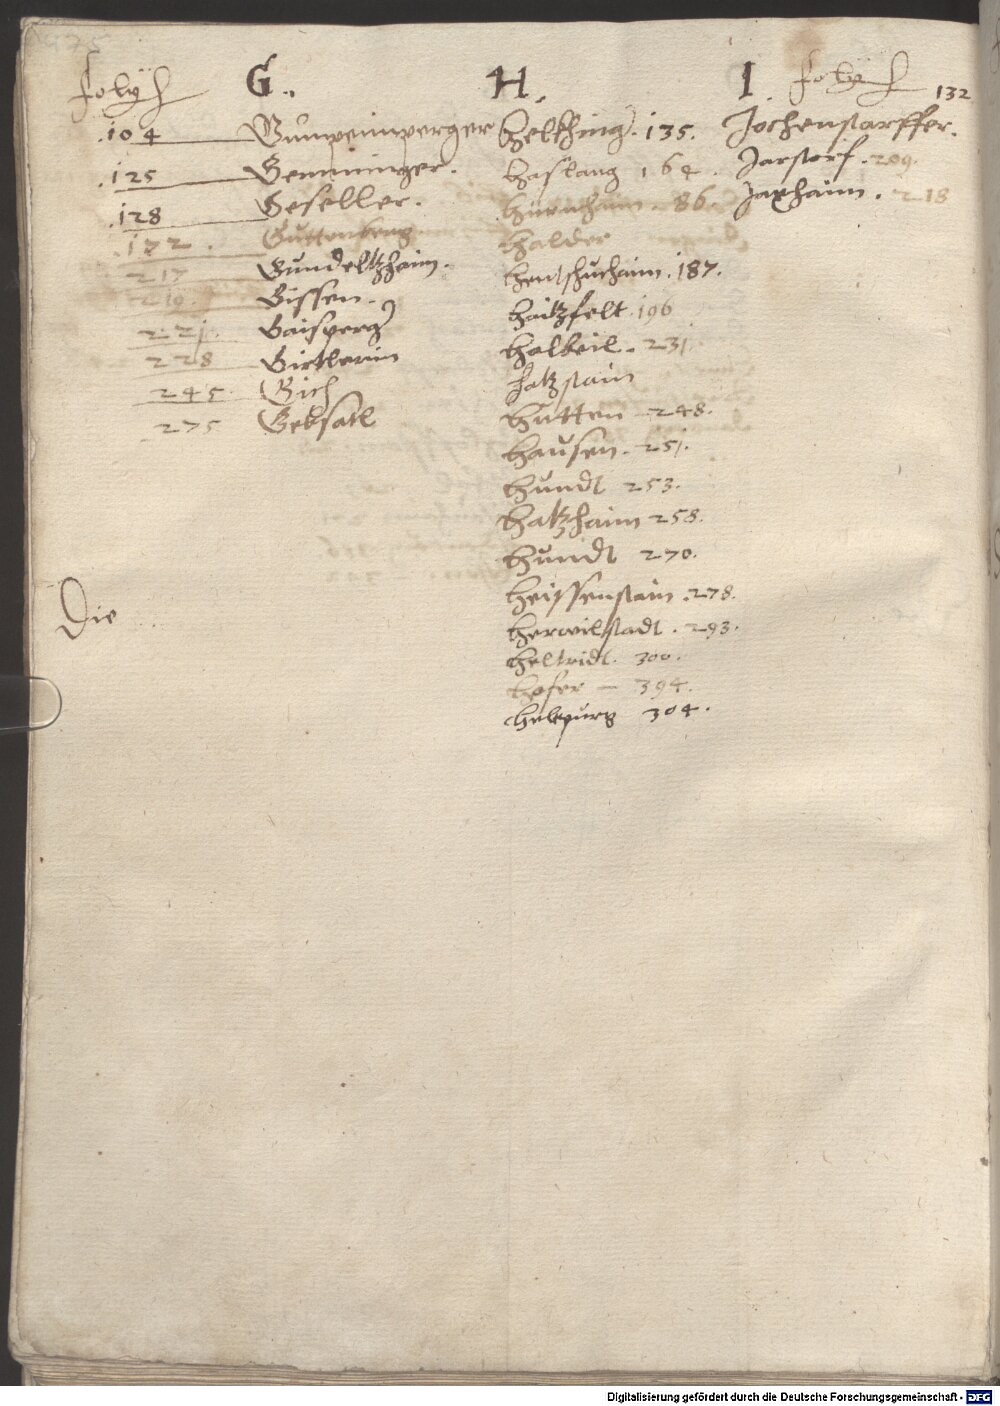 folys G. H. I. folys
104 Gumpennperger Helkhing. 135. Jochenstarffer. 132
.125 Gemminger. Haslang 164. Jarstorf. 209.
.128 Geseller. Hürnhaim. 86. Jaxhaim. 218
.172. Guttenberg Halder
217 Gundeltzhaim. Hentschuchaim. 187.
219. Gissen. Hatzfelt. 196
221. Gaisperg Halbeil. 231.
228 Girtlerin Hatzstain
245. Gich Hutten 248.
275 Gebsatl Hausen. 251.
Hundt 253.
Hatzhaim 258.
Hundt 270.
Heissenstain. 278.
Die
Herwilstadt. 293.
Heltridt. 300.
Hofer — 394.
Helpurg 304.
Digitalisierung gefördert durch die Deutsche Forschungsgemeinschaft - DFG